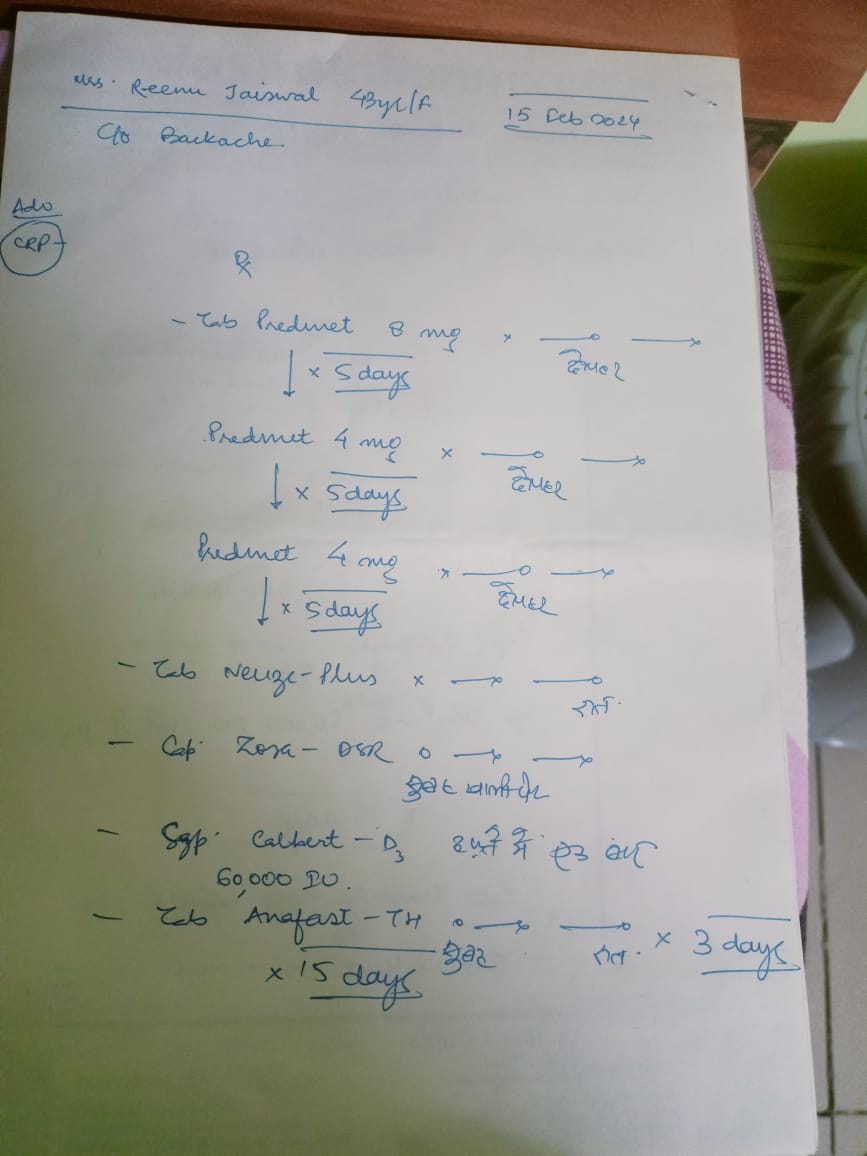 Mrs. Reenu Jaiswal 43yr/F
15 Feb 2024
C/o Backache
Adv
CRP
Rx
- Tab Predmet 8 mg x —o —x
दोपहर
↓ x 5 days
Predmet 4 mg x —o —x
दोपहर
↓ x 5 days
Predmet 4 mg x —o —x
दोपहर
↓ x 5 days
- Tab Neuge-Plus x —x —o
रात
- Cap. Zosa-DSR o —x —x
सुबह खाली पेट
- Syp. Calbert-D3 हफ्ते में एक बार
60,000 IU.
- Tab Anafast-TH o —x —o x 3 days
सुबह रात
x 15 days